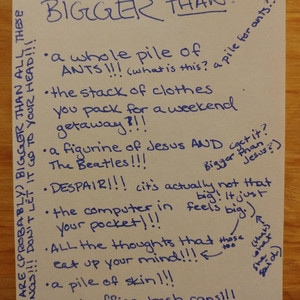 BIGGER THAN:
• a whole pile of
ANTS!!! (what is this? a pile for ants?
• the stack of clothes
you pack for a weekend
getaway?!!
• a figurine of Jesus AND
The Beatles!!! (get it?
Bigger than
Jesus?)
• DESPAIR!!! (it's actually not that
big! It just
feels big)
• the computer in
your pocket)!!!
• ALL the thoughts that
eat up your mind!!!
those
too
• a pile of skin!!!
ARE (PROBABLY) BIGGER THAN ALL THESE
DON'T LET IT GO TO YOUR HEAD!!!